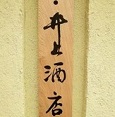 ・井上酒店